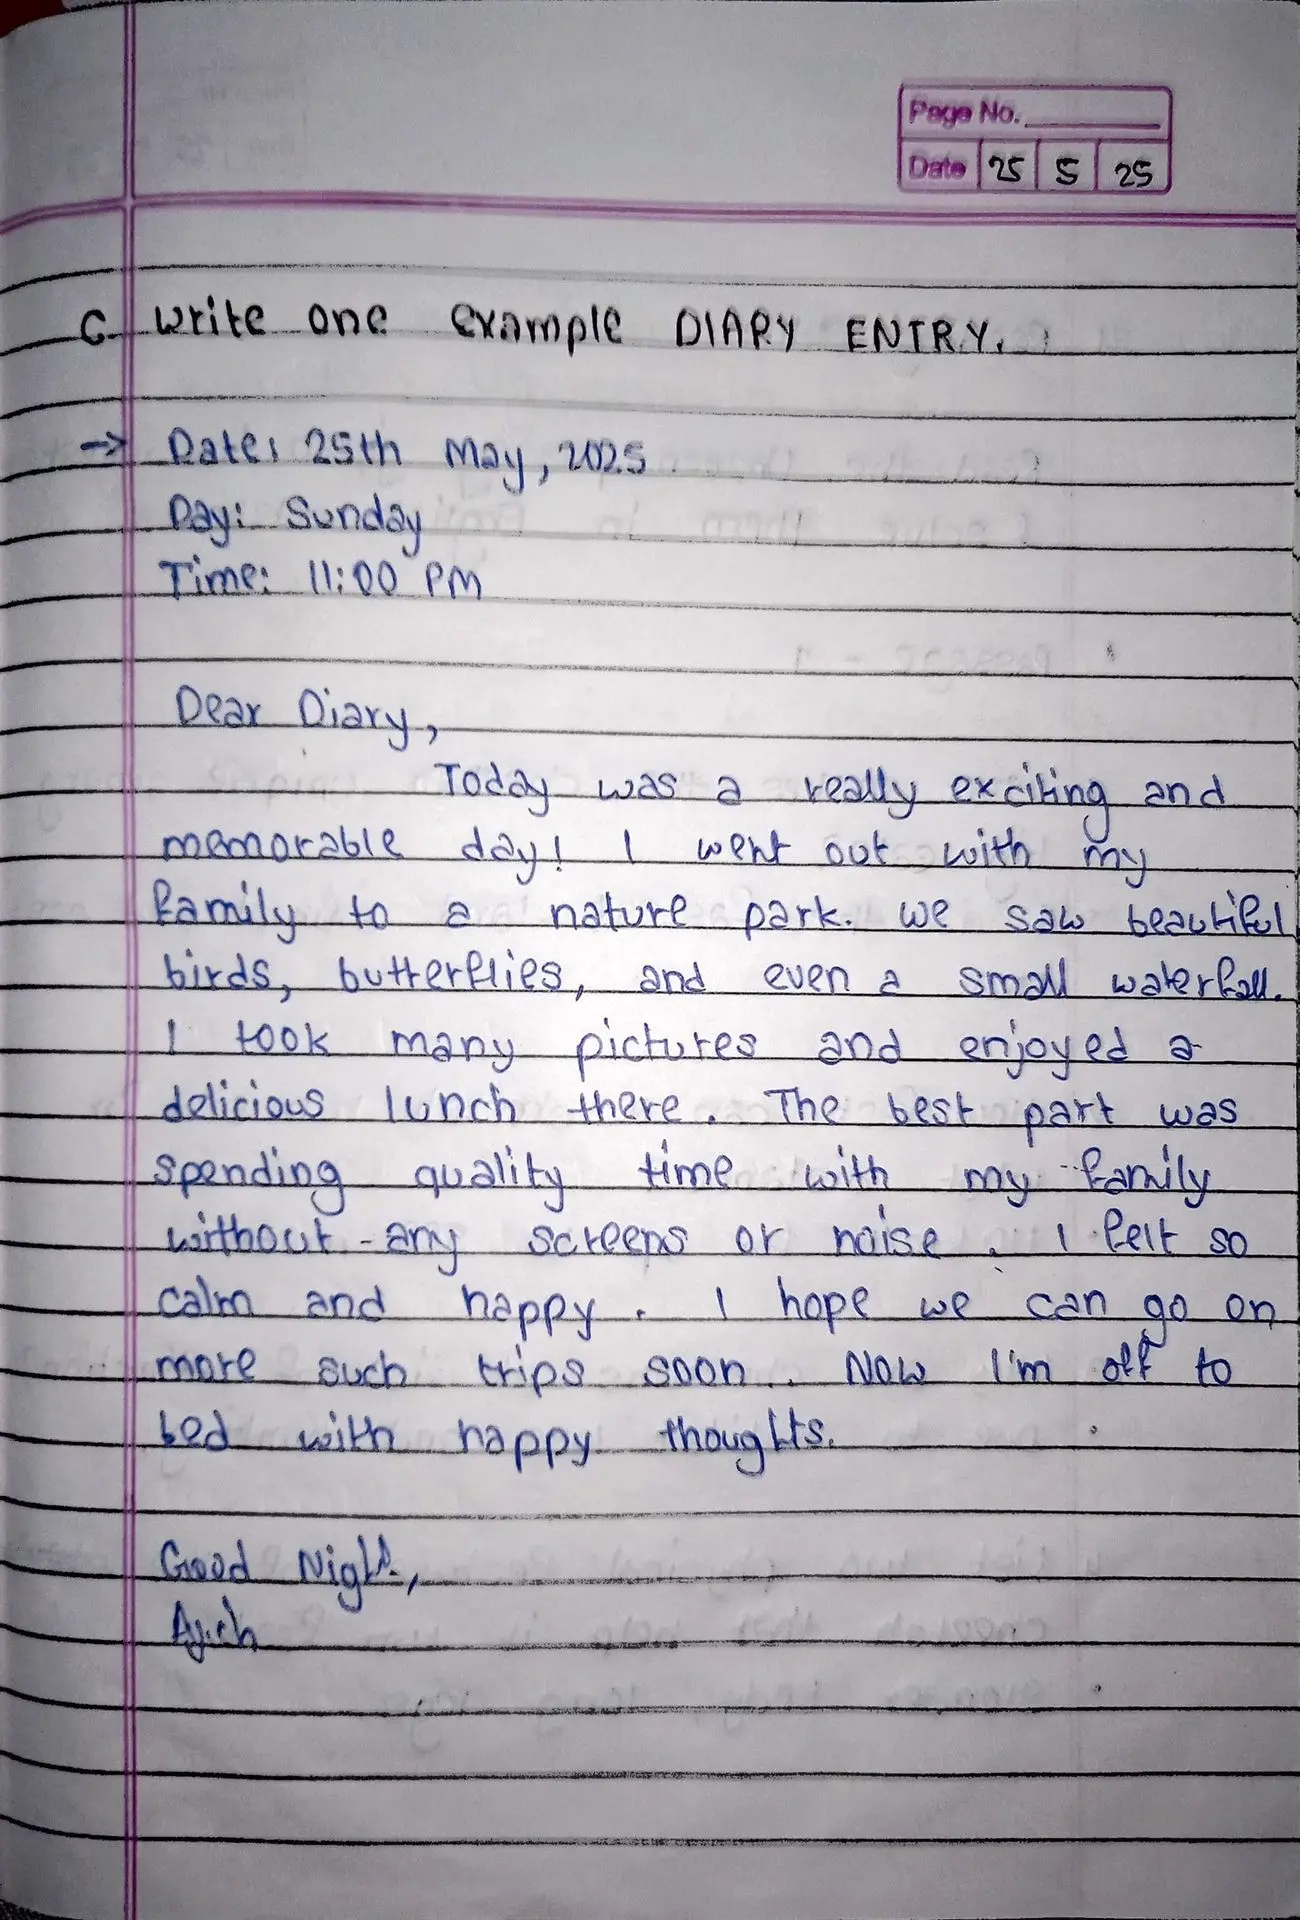 Page No.
Date 25 5 25
C. Write one example DIARY ENTRY.
→ Date: 25th May, 2025
Day: Sunday
Time: 11:00 PM
Dear Diary,
Today was a really exciting and
memorable day! I went out with my
family to a nature park. We saw beautiful
birds, butterflies, and even a small waterfall.
I took many pictures and enjoyed a
delicious lunch there. The best part was
spending quality time with my family
without any screens or noise. I felt so
calm and happy. I hope we can go on
more such trips soon. Now I'm off to
bed with happy thoughts.
Good Night,